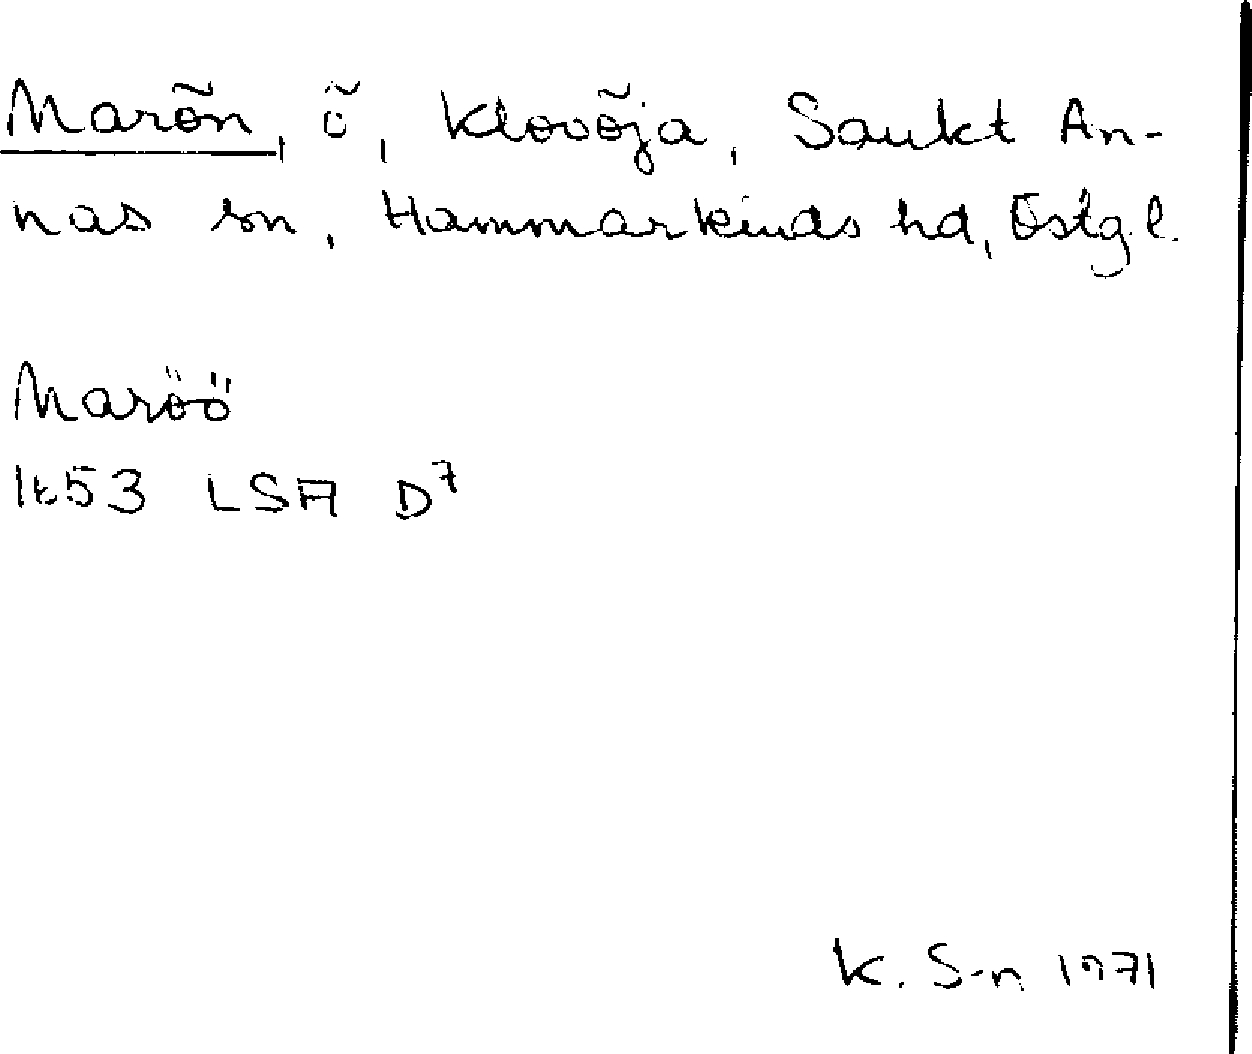 Marön, ö, Klovöja, Sankt An-
nas sn, Hammarkinds hd, Östg.l.
Maröö
1653 LSA D7
K. S-n 1971